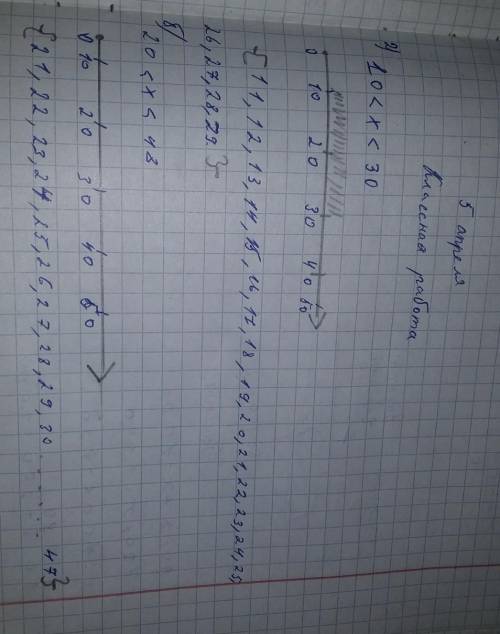 5 апреля
Классная работа
а) 10 < x < 30
0 10 20 30 40 50
{11, 12, 13, 14, 15, 16, 17, 18, 19, 20, 21, 22, 23, 24, 25
26, 27, 28, 29.}
б)
20 < x < 48
0 10 20 30 40 50
{21, 22, 23, 24, 25, 26, 27, 28, 29, 30 ....... 47}